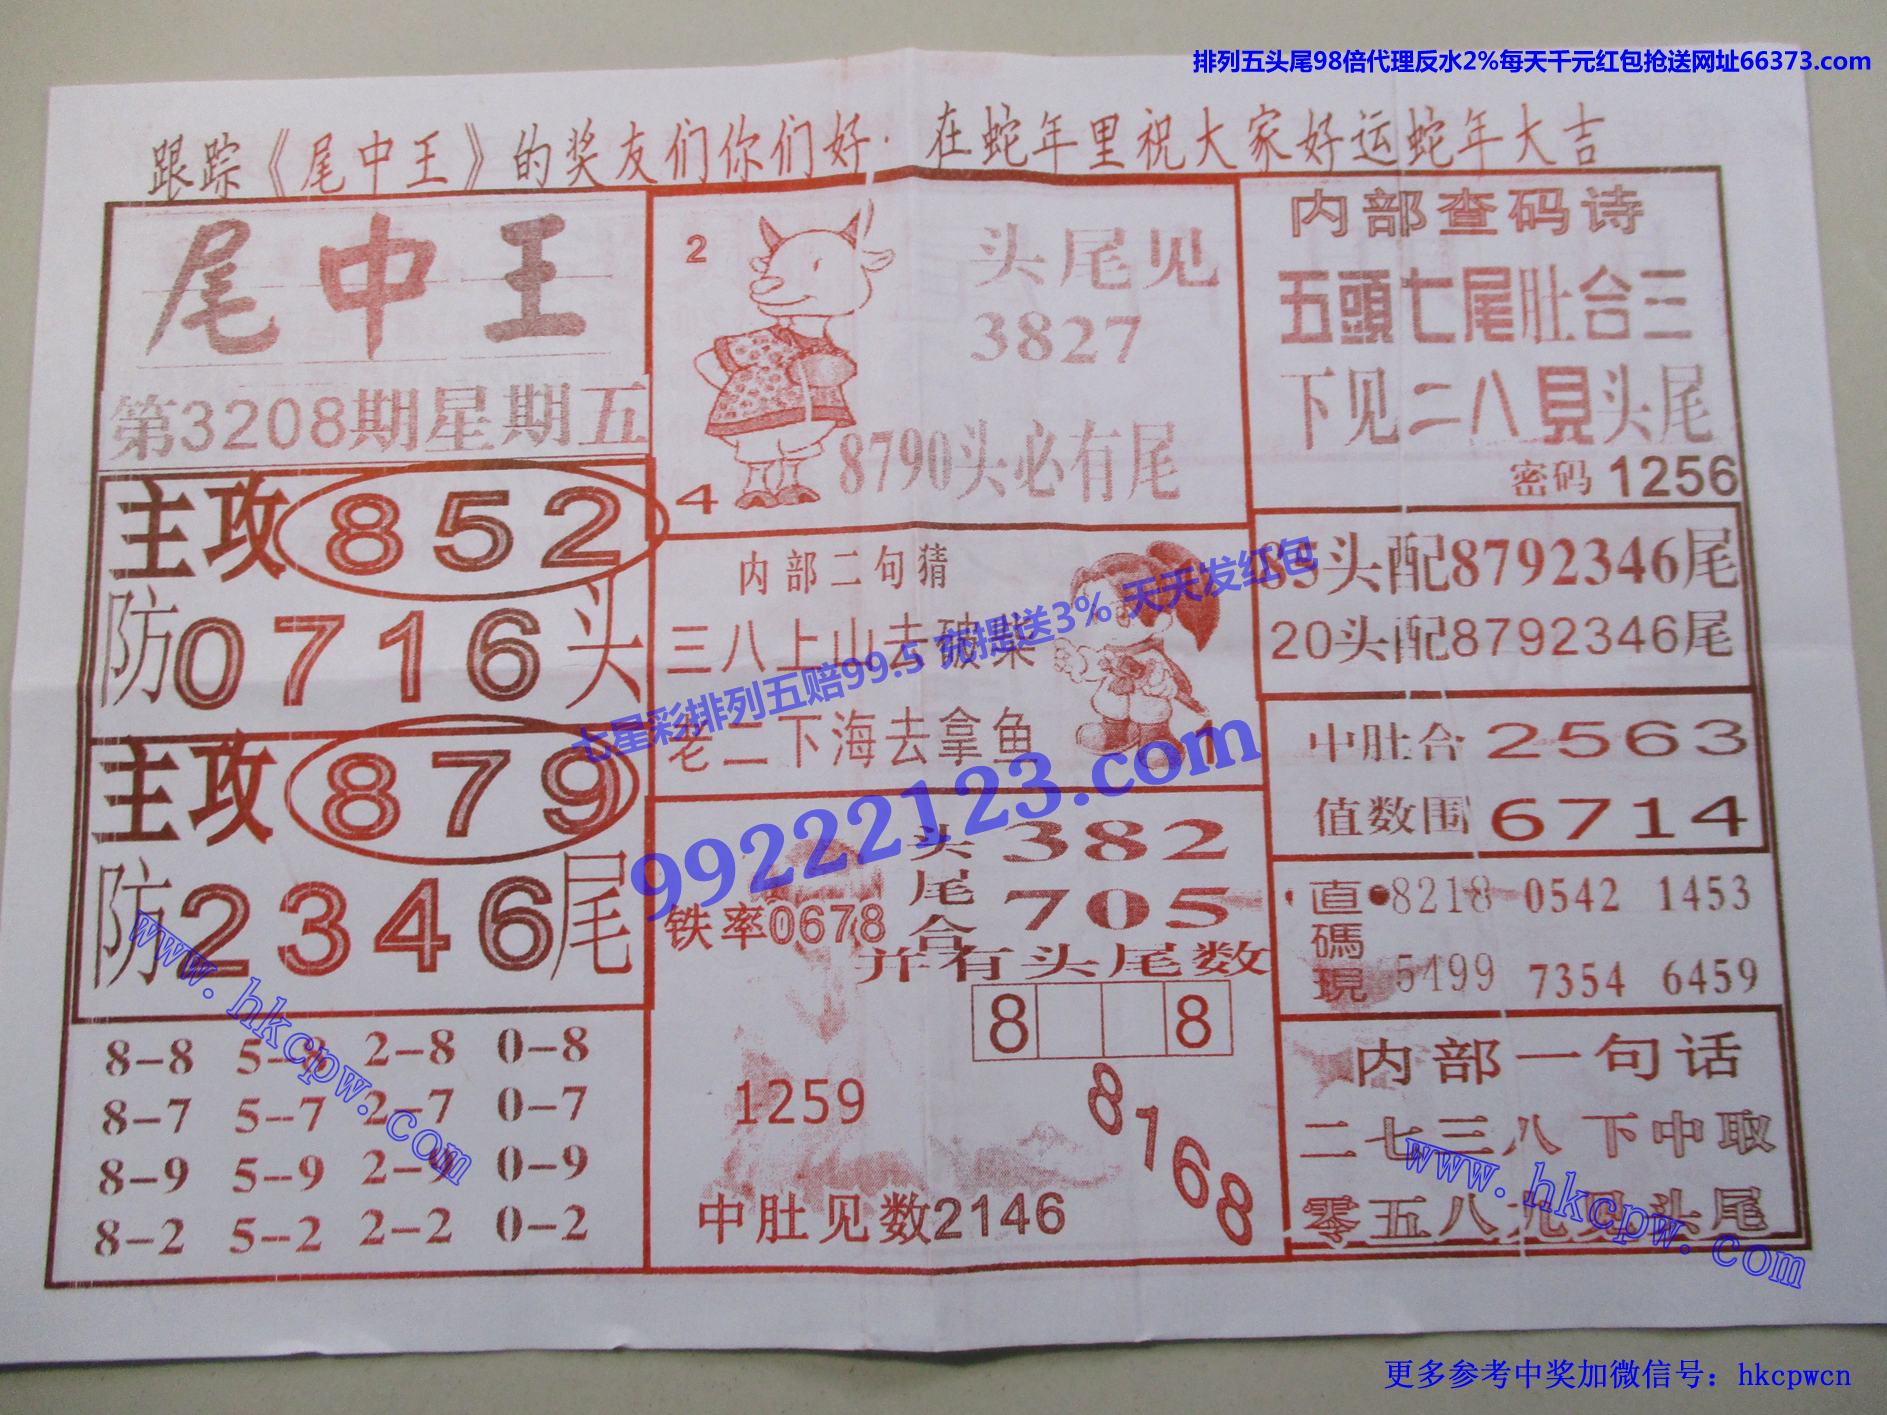 排列五头尾98倍代理反水2%每天千元红包抢送网址66373.com
跟踪《尾中王》的奖友们你们好·在蛇年里祝大家好运蛇年大吉
尾中王
第3208期星期五
主攻852
防0716头
主攻879
防2346尾
8-8 5-8 2-8 0-8
8-7 5-7 2-7 0-7
8-9 5-9 2-9 0-9
8-2 5-2 2-2 0-2
2
头尾见
3827
8790头必有尾
4
内部二句猜
三八上山去破柴
老二下海去拿鱼
1
七星彩排列五赔99.5 充提送3% 天天发红包
99222123.com
头 382
尾 705
合
铁率0678
并有头尾数
8 8
1259
8168
中肚见数2146
内部查码诗
五頭七尾肚合三
下见二八見头尾
密码1256
85头配8792346尾
20头配8792346尾
中肚合2563
值数围6714
直碼現
8218 0542 1453
5499 7354 6459
内部一句话
二七三八下中取
零五八九见头尾
www.hkcpw.com
www.hkcpw.com
更多参考中奖加微信号：hkcpwcn